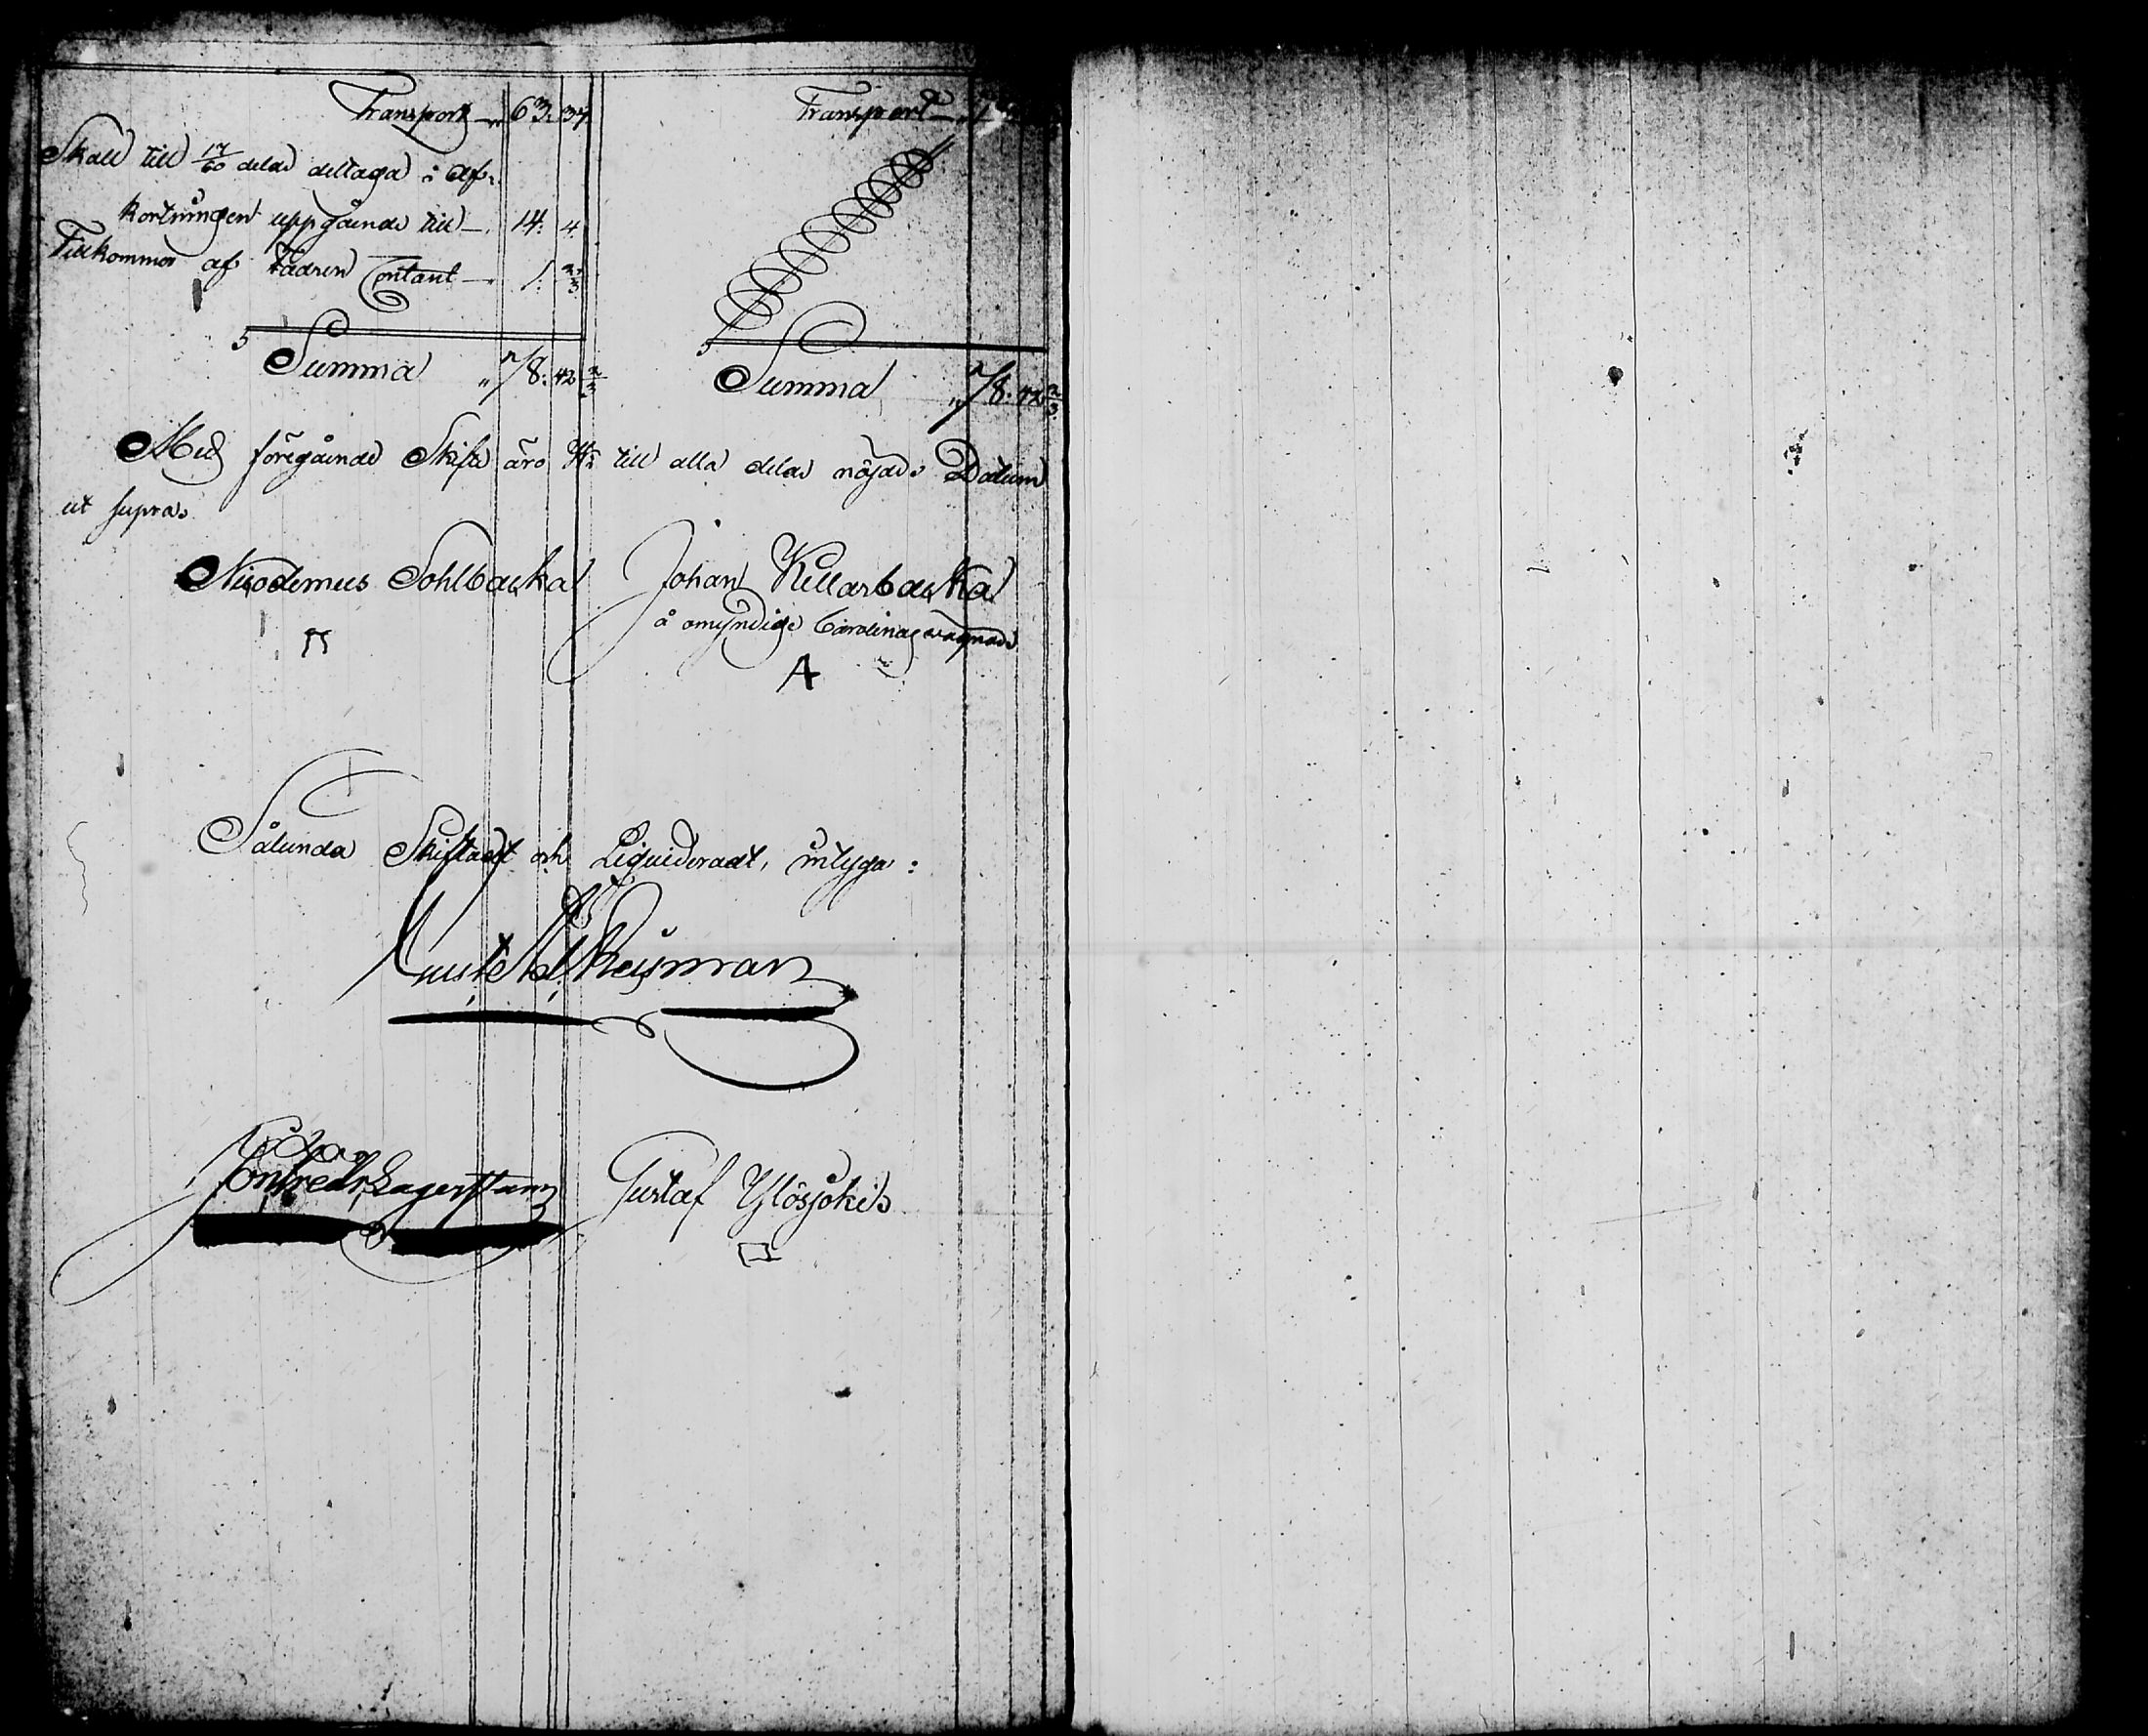 Transport 63. 34
Skall till 17/60 delar deltaga i Af-
kortningen uppgående till 14. 4.
Tillkommer af Fadren Contant 1. 4 2/3
Summa 78. 42 2/3
Transport
Summa 78. 42 2/3
Med föregående Skifte äro Wi till alla delar nöjde. Datum
ut supra.
Nicodemus Sohlbacka
Johan Kellarbacka
å omyndige Carolinas wägnar
A
Sålunda Skiftadt och Liquideradt, intyga:
Gustaf Ylösjoki